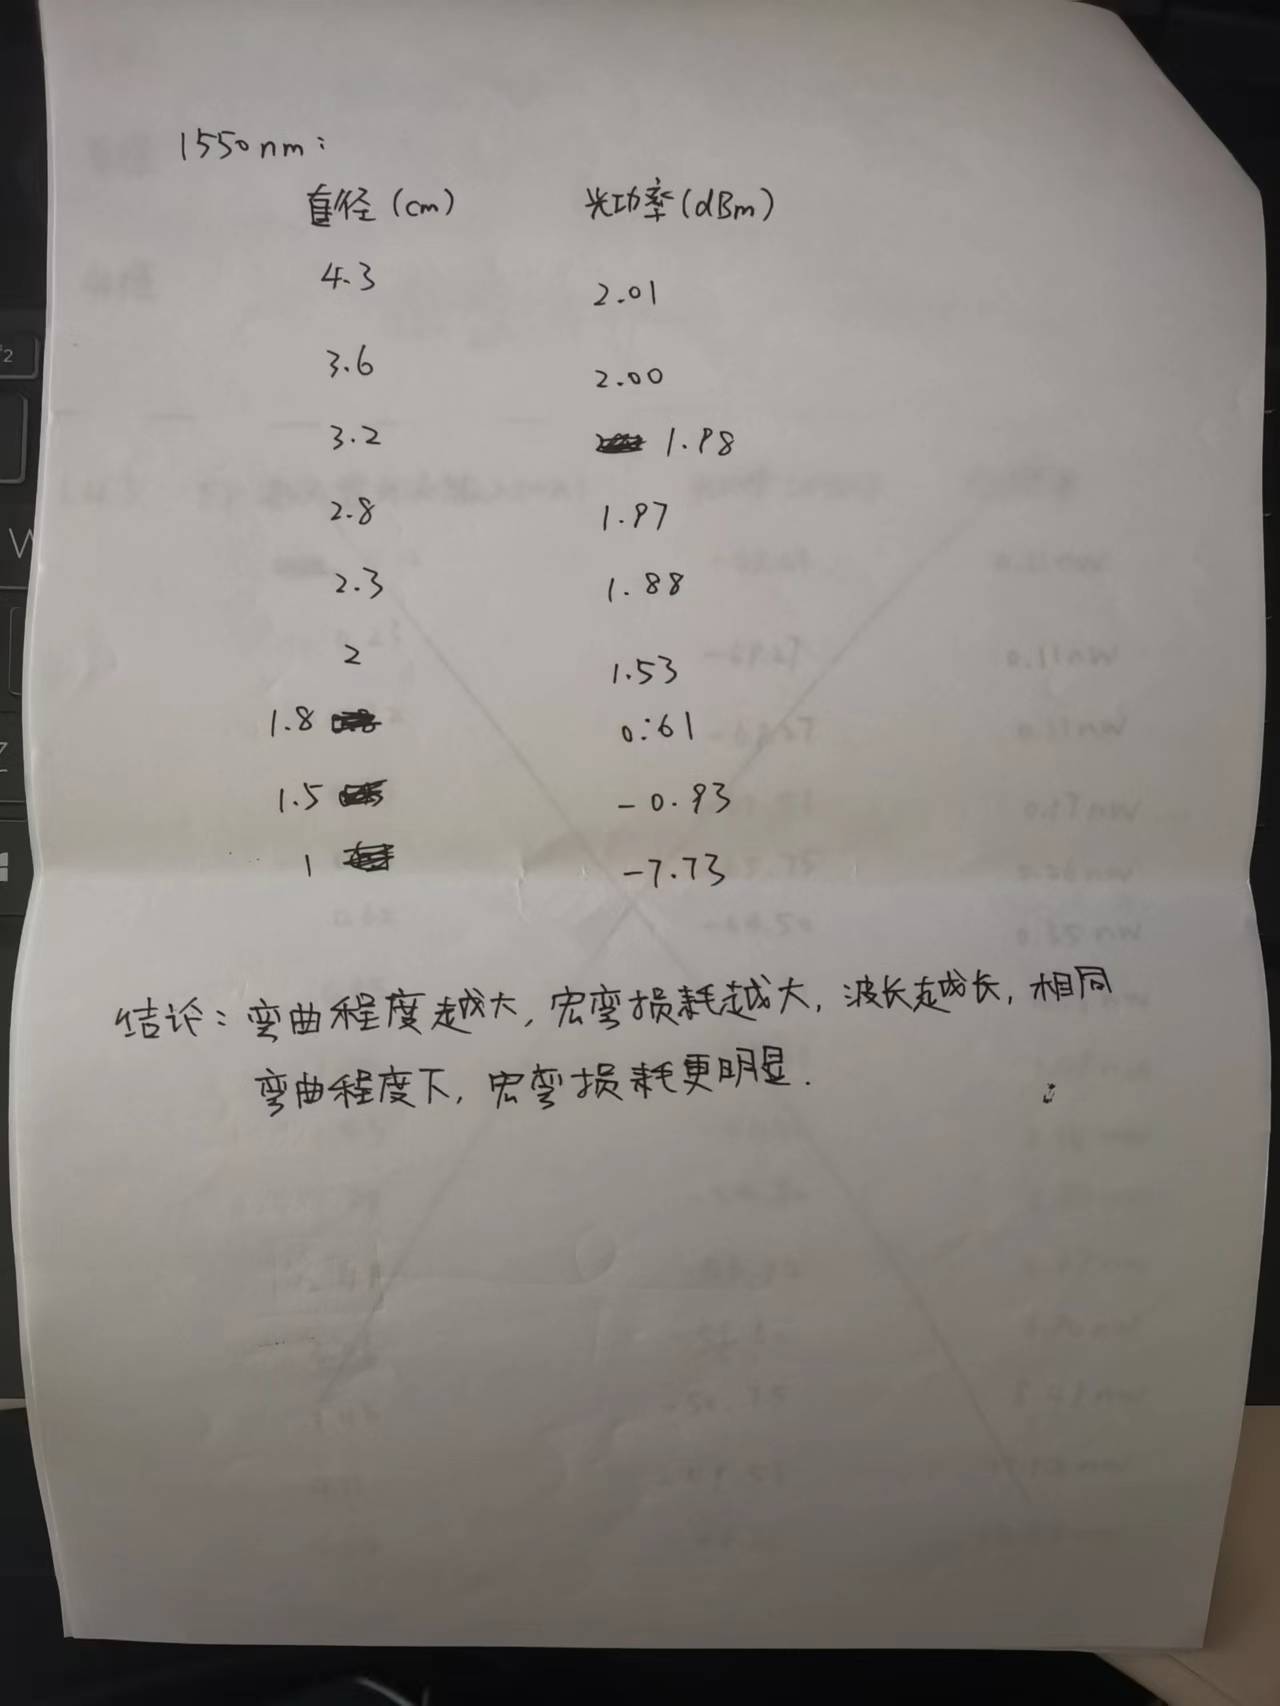 1550nm:
直径(cm) 光功率(dBm)
4.3 2.01
3.6 2.00
3.2 1.98
2.8 1.97
2.3 1.88
2 1.53
1.8 0.61
1.5 -0.93
1 -7.73
结论: 弯曲程度越大, 宏弯损耗越大, 波长越长, 相同
弯曲程度下, 宏弯损耗更明显.